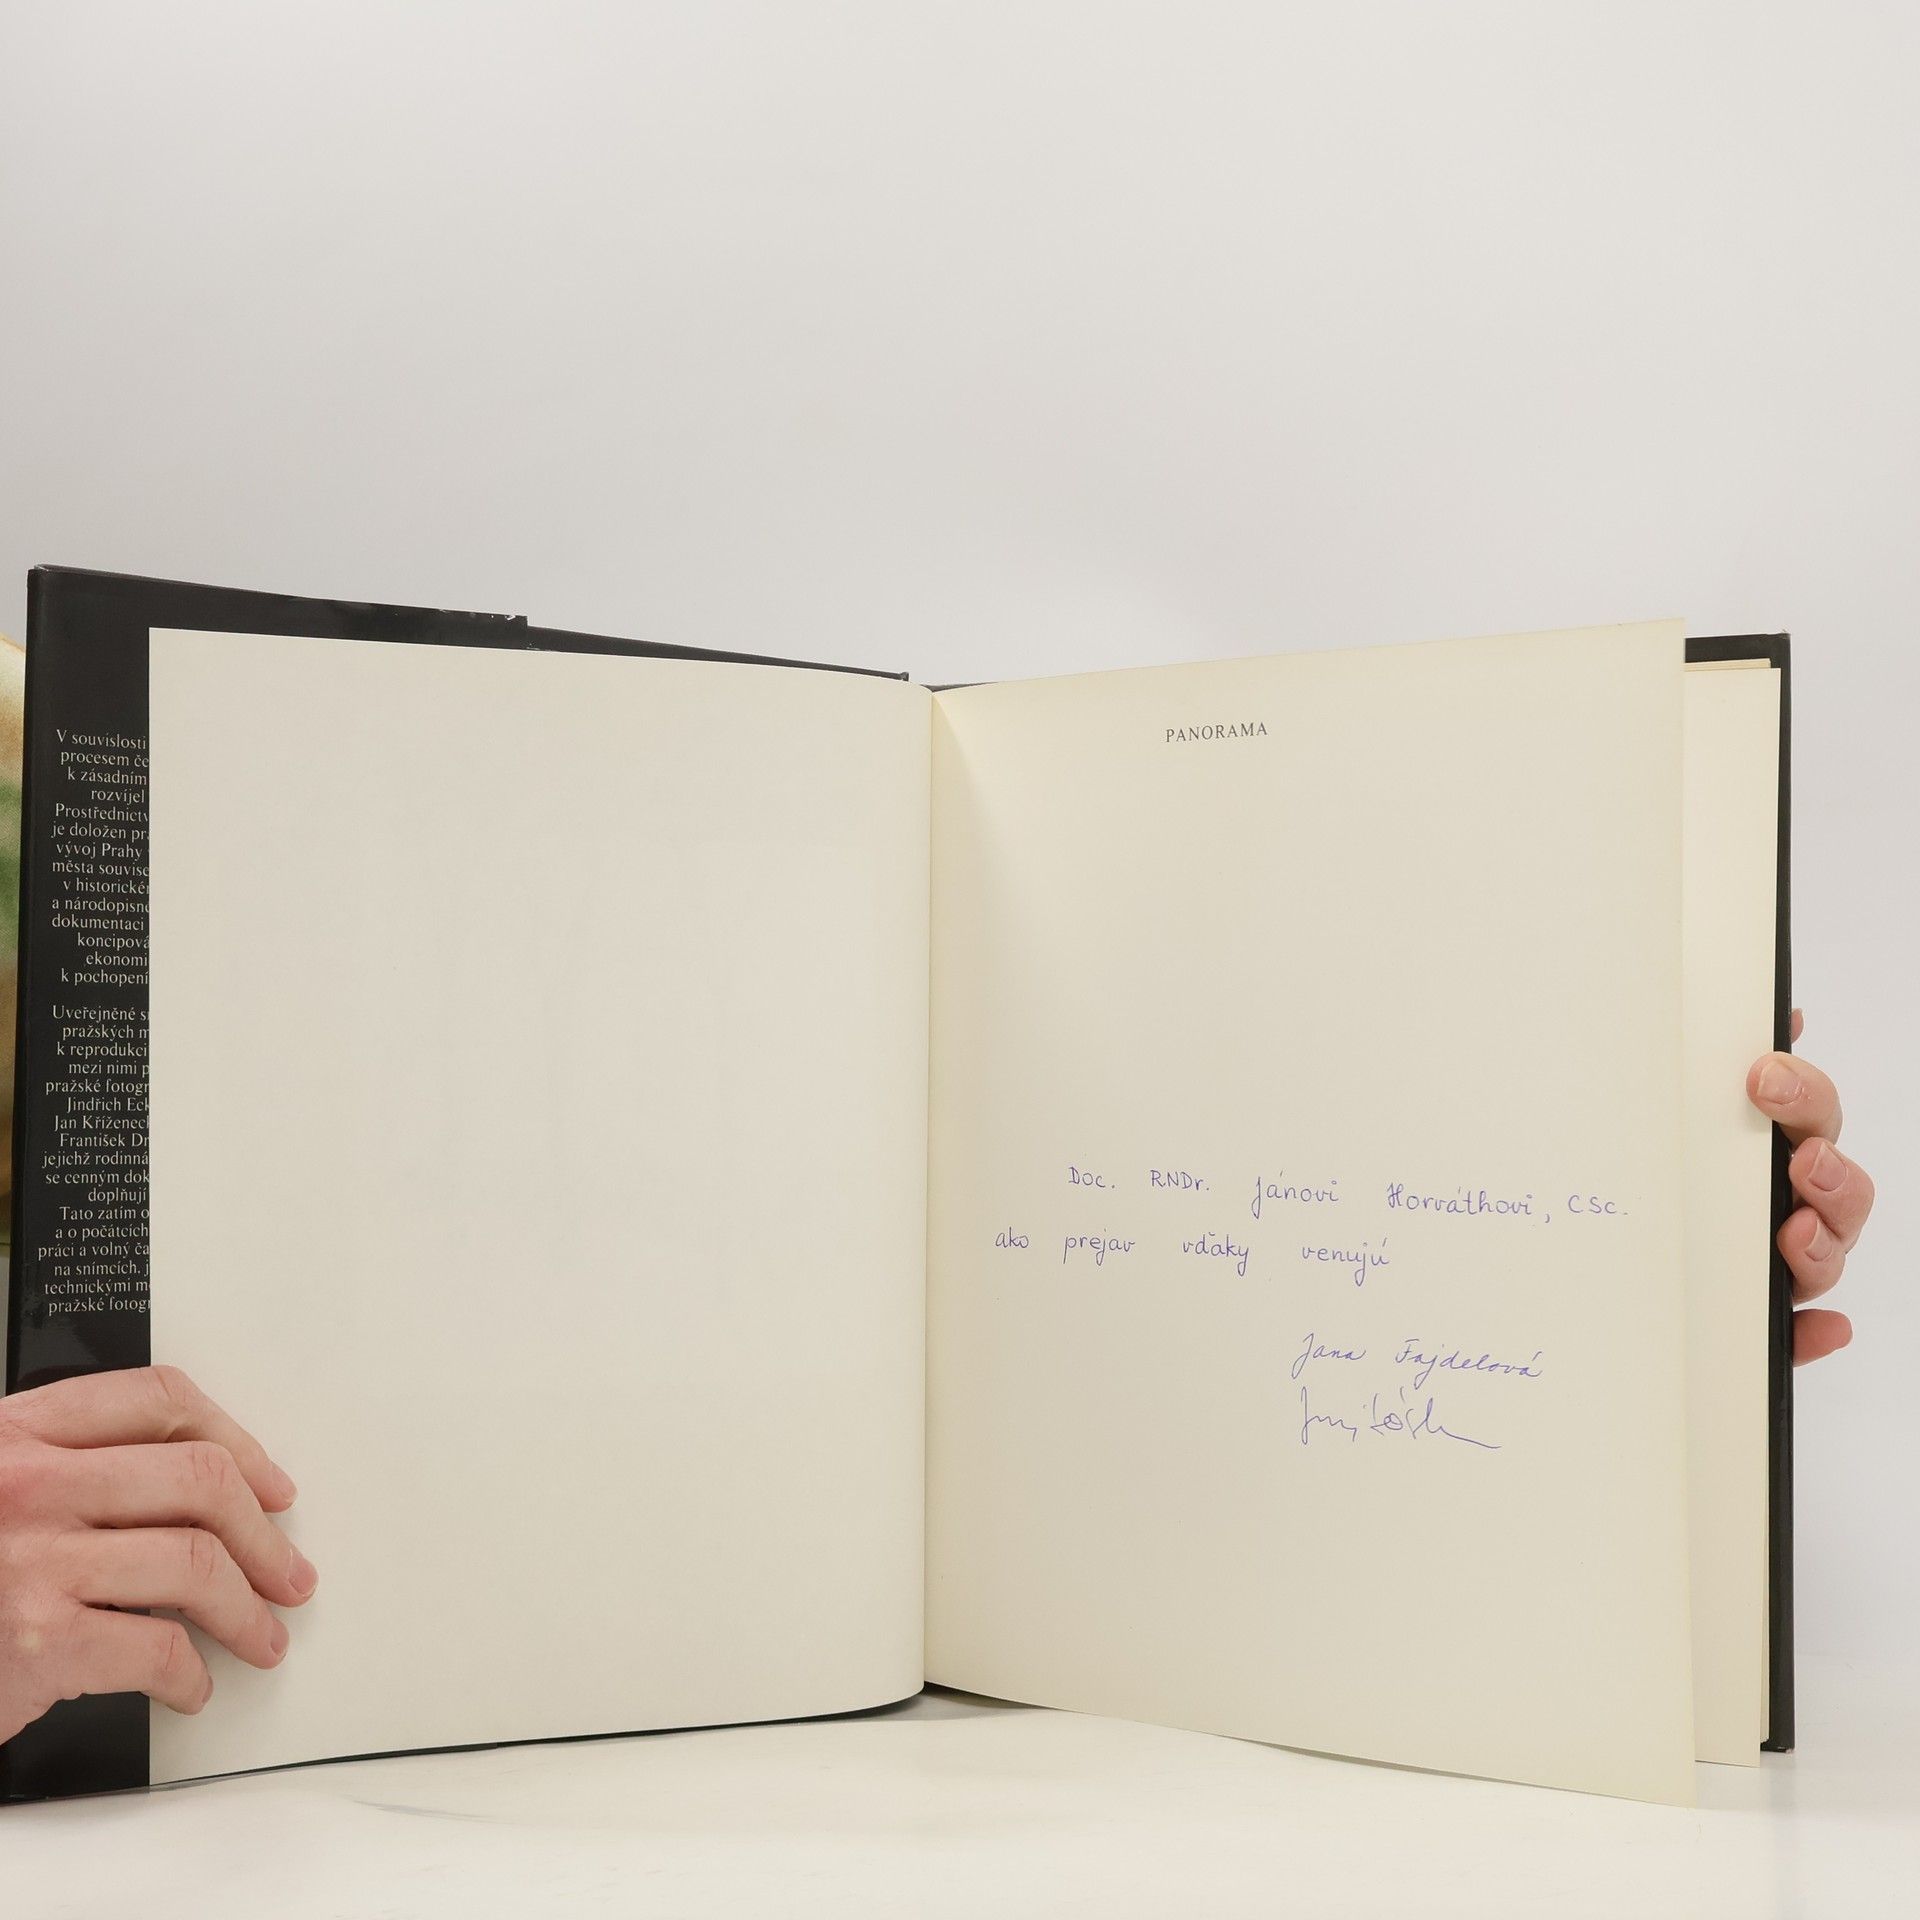 V souvislosti
procesem če
k zásadním
rozvíjel
Prostřednictv
je doložen pr
vývoj Prahy
města souvise
v historické
a národopisn
dokumentaci
koncipová
ekonomi
k pochopení
Uveřejněné s
pražských m
k reprodukci
mezi nimi p
pražské fotogr
Jindřich Eck
Jan Kříženec
František Dr
jejichž rodinná
se cenným dok
doplňují
Tato zatím o
a o počátcích
práci a volný ča
na snímcích, j
technickými m
pražské fotogr
PANORAMA
Doc. RNDr. Jánovi Horváthovi, CSc.
ako prejav vďaky venujú
Jana Fajdelová